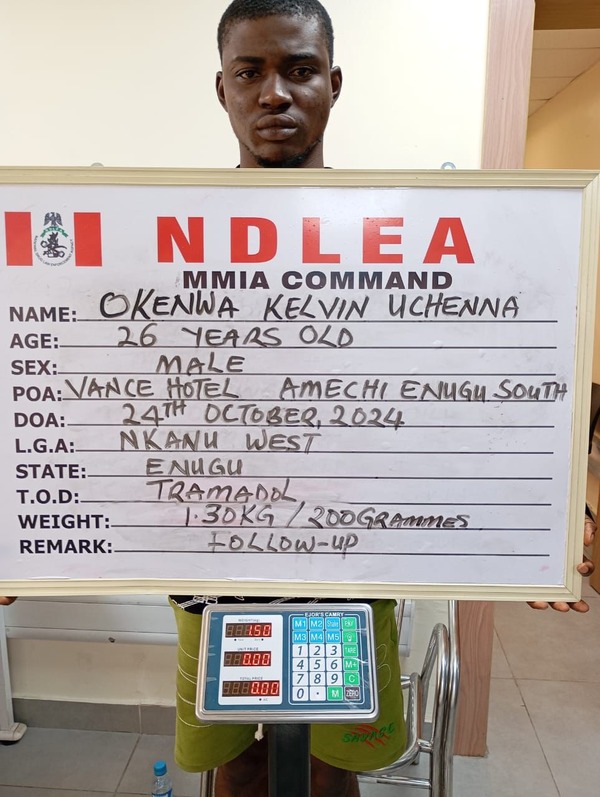 NDLEA
MMIA COMMAND
NAME: OKENWA KELVIN UCHENNA
AGE: 26 YEARS OLD
SEX: MALE
POA: VANCE HOTEL AMECHI ENUGU SOUTH
DOA: 24TH OCTOBER, 2024
L.G.A: NKANU WEST
STATE: ENUGU
T.O.D: TRAMADOL
WEIGHT: 1.30KG / 200GRAMMES
REMARK: FOLLOW-UP
EJOR'S CAMRY
WEIGHT(kg)
1.50
UNIT PRICE
0.00
TOTAL PRICE
0.00
M1 M2
M3 M4 M5
1 2 3 TARE
4 5 6 M+
7 8 9 C
0 . M ZERO